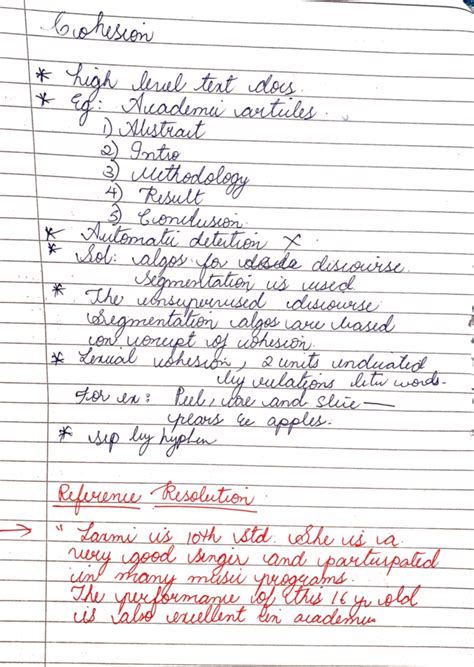 Cohesion
* high level text docs.
* Eg: Academic articles.
1) Abstract
2) Intro
3) Methodology
4) Result
5) Conclusion
* Automatic detection X
* Sol: algos for discourse
segmentation is used
* The unsupervised discourse
segmentation algos are based
on concept of cohesion.
* Lexical cohesion, 2 units indicated
by relations betw words.
For ex: Peel, core and slice —
pears & apples.
* sep by hyphen
Reference Resolution.
→ " Laxmi is 10th std. She is a
very good singer and participated
in many music programs.
The performance of this 16 yr old
is also excellent in academics